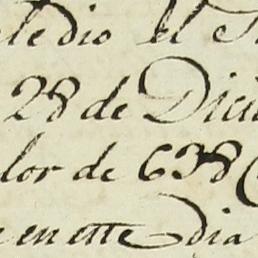 le dio el
28 de Dici
lor de 638
en este dia